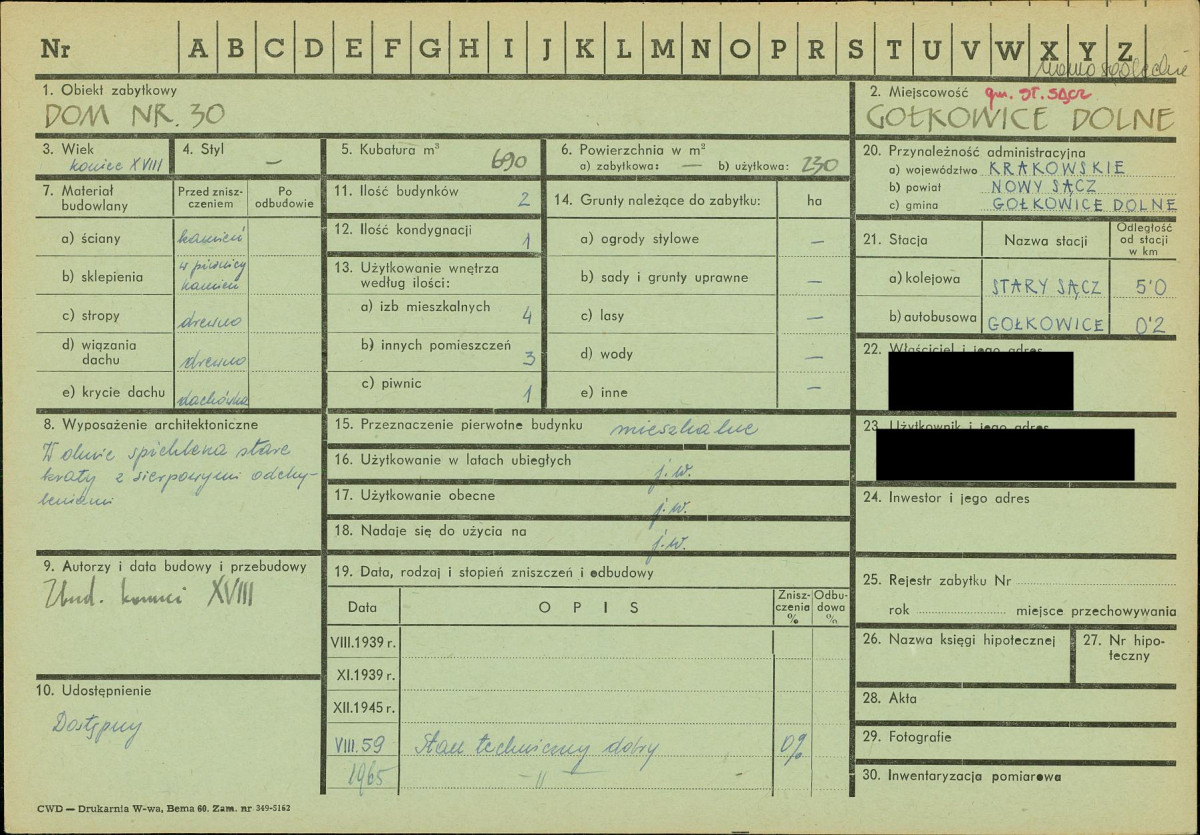 Nr A B C D E F G H I J K L M N O P R S T U V W X Y Z
1. Obiekt zabytkowy
DOM NR. 30
2. Miejscowość gm. ST. SĄCZ
GOŁKOWICE DOLNE
3. Wiek
koniec XVIII
4. Styl
—
5. Kubatura m³
690
6. Powierzchnia w m²
a) zabytkowa: — b) użytkowa: 230
20. Przynależność administracyjna
a) województwo KRAKOWSKIE
b) powiat NOWY SĄCZ
c) gmina GOŁKOWICE DOLNE
7. Materiał budowlany
Przed zniszczeniem
Po odbudowie
a) ściany kamień
b) sklepienia w piwnicy kamień
c) stropy drewno
d) wiązania dachu drewno
e) krycie dachu dachówka
11. Ilość budynków 2
12. Ilość kondygnacji 1
13. Użytkowanie wnętrza
według ilości:
a) izb mieszkalnych 4
b) innych pomieszczeń 3
c) piwnic 1
14. Grunty należące do zabytku: ha
a) ogrody stylowe —
b) sady i grunty uprawne —
c) lasy —
d) wody —
e) inne —
21. Stacja Nazwa stacji Odległość od stacji w km
a) kolejowa STARY SĄCZ 5'0
b) autobusowa GOŁKOWICE 0'2
22. Właściciel i jego adres
23. Użytkownik i jego adres
24. Inwestor i jego adres
8. Wyposażenie architektoniczne
W oknie spichlerza stare
kraty z sierpowymi odchy-
leniami
15. Przeznaczenie pierwotne budynku mieszkalne
16. Użytkowanie w latach ubiegłych j.w.
17. Użytkowanie obecne j.w.
18. Nadaje się do użycia na j.w.
9. Autorzy i data budowy i przebudowy
Zbud. koniec XVIII
19. Data, rodzaj i stopień zniszczeń i odbudowy
Data OPIS Zniszczenia % Odbudowa %
VIII.1939 r.
XI.1939 r.
XII.1945 r.
VIII.59 Stan techniczny dobry 0%
1965 —"—
10. Udostępnienie
Dostępny
25. Rejestr zabytku Nr
rok miejsce przechowywania
26. Nazwa księgi hipotecznej
27. Nr hipoteczny
28. Akta
29. Fotografie
30. Inwentaryzacja pomiarowa
CWD — Drukarnia W-wa, Bema 60. Zam. nr 349-5162